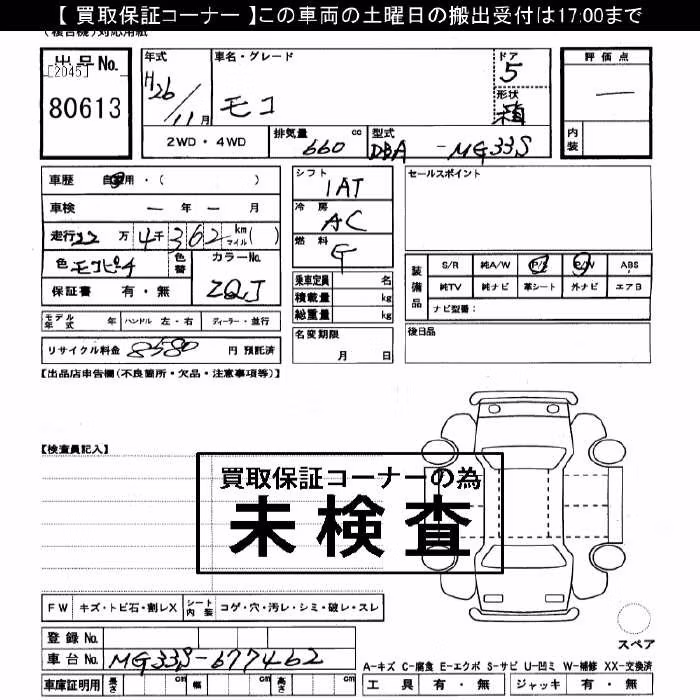 【 買取保証コーナー 】この車両の土曜日の搬出受付は17:00まで
出品No.
[2045]
80613
年式
H26/11月
車名・グレード
モコ
ドア
5
形状
箱
評価点
―
内装
2WD・4WD
排気量
660 cc
型式
DBA-MG33S
車歴 自家用・( )
車検 ー 年 ー 月
万 4千 362 km マイル( )
色 モコピーチ
色替
カラーNo.
ZQJ
保証書 有・無
モデル年式 年 ハンドル 左・右 ディーラー・並行
リサイクル料金 8580 円 預託済
シフト
1AT
冷房
AC
燃料
G
乗車定員 名
積載量 kg
総重量 kg
名変期限
月 日
セールスポイント
装備品
S/R 純A/W P/S P/W ABS
純TV 純ナビ 革シート 外ナビ エアB
ナビ型番:
後日品
【出品店申告欄(不良箇所・欠品・注意事項等)】
【検査員記入】
買取保証コーナーの為
未検査
FW キズ・トビ石・割レX シート内装 コゲ・穴・汚レ・シミ・破レ・スレ
スペア
登録No.
車台No. MG33S-677462
車庫証明用 長さ cm 幅 cm 高さ cm
A-キズ C-腐食 E-エクボ S-サビ U-凹ミ W-補修 XX-交換済
工具 有・無 ジャッキ 有・無